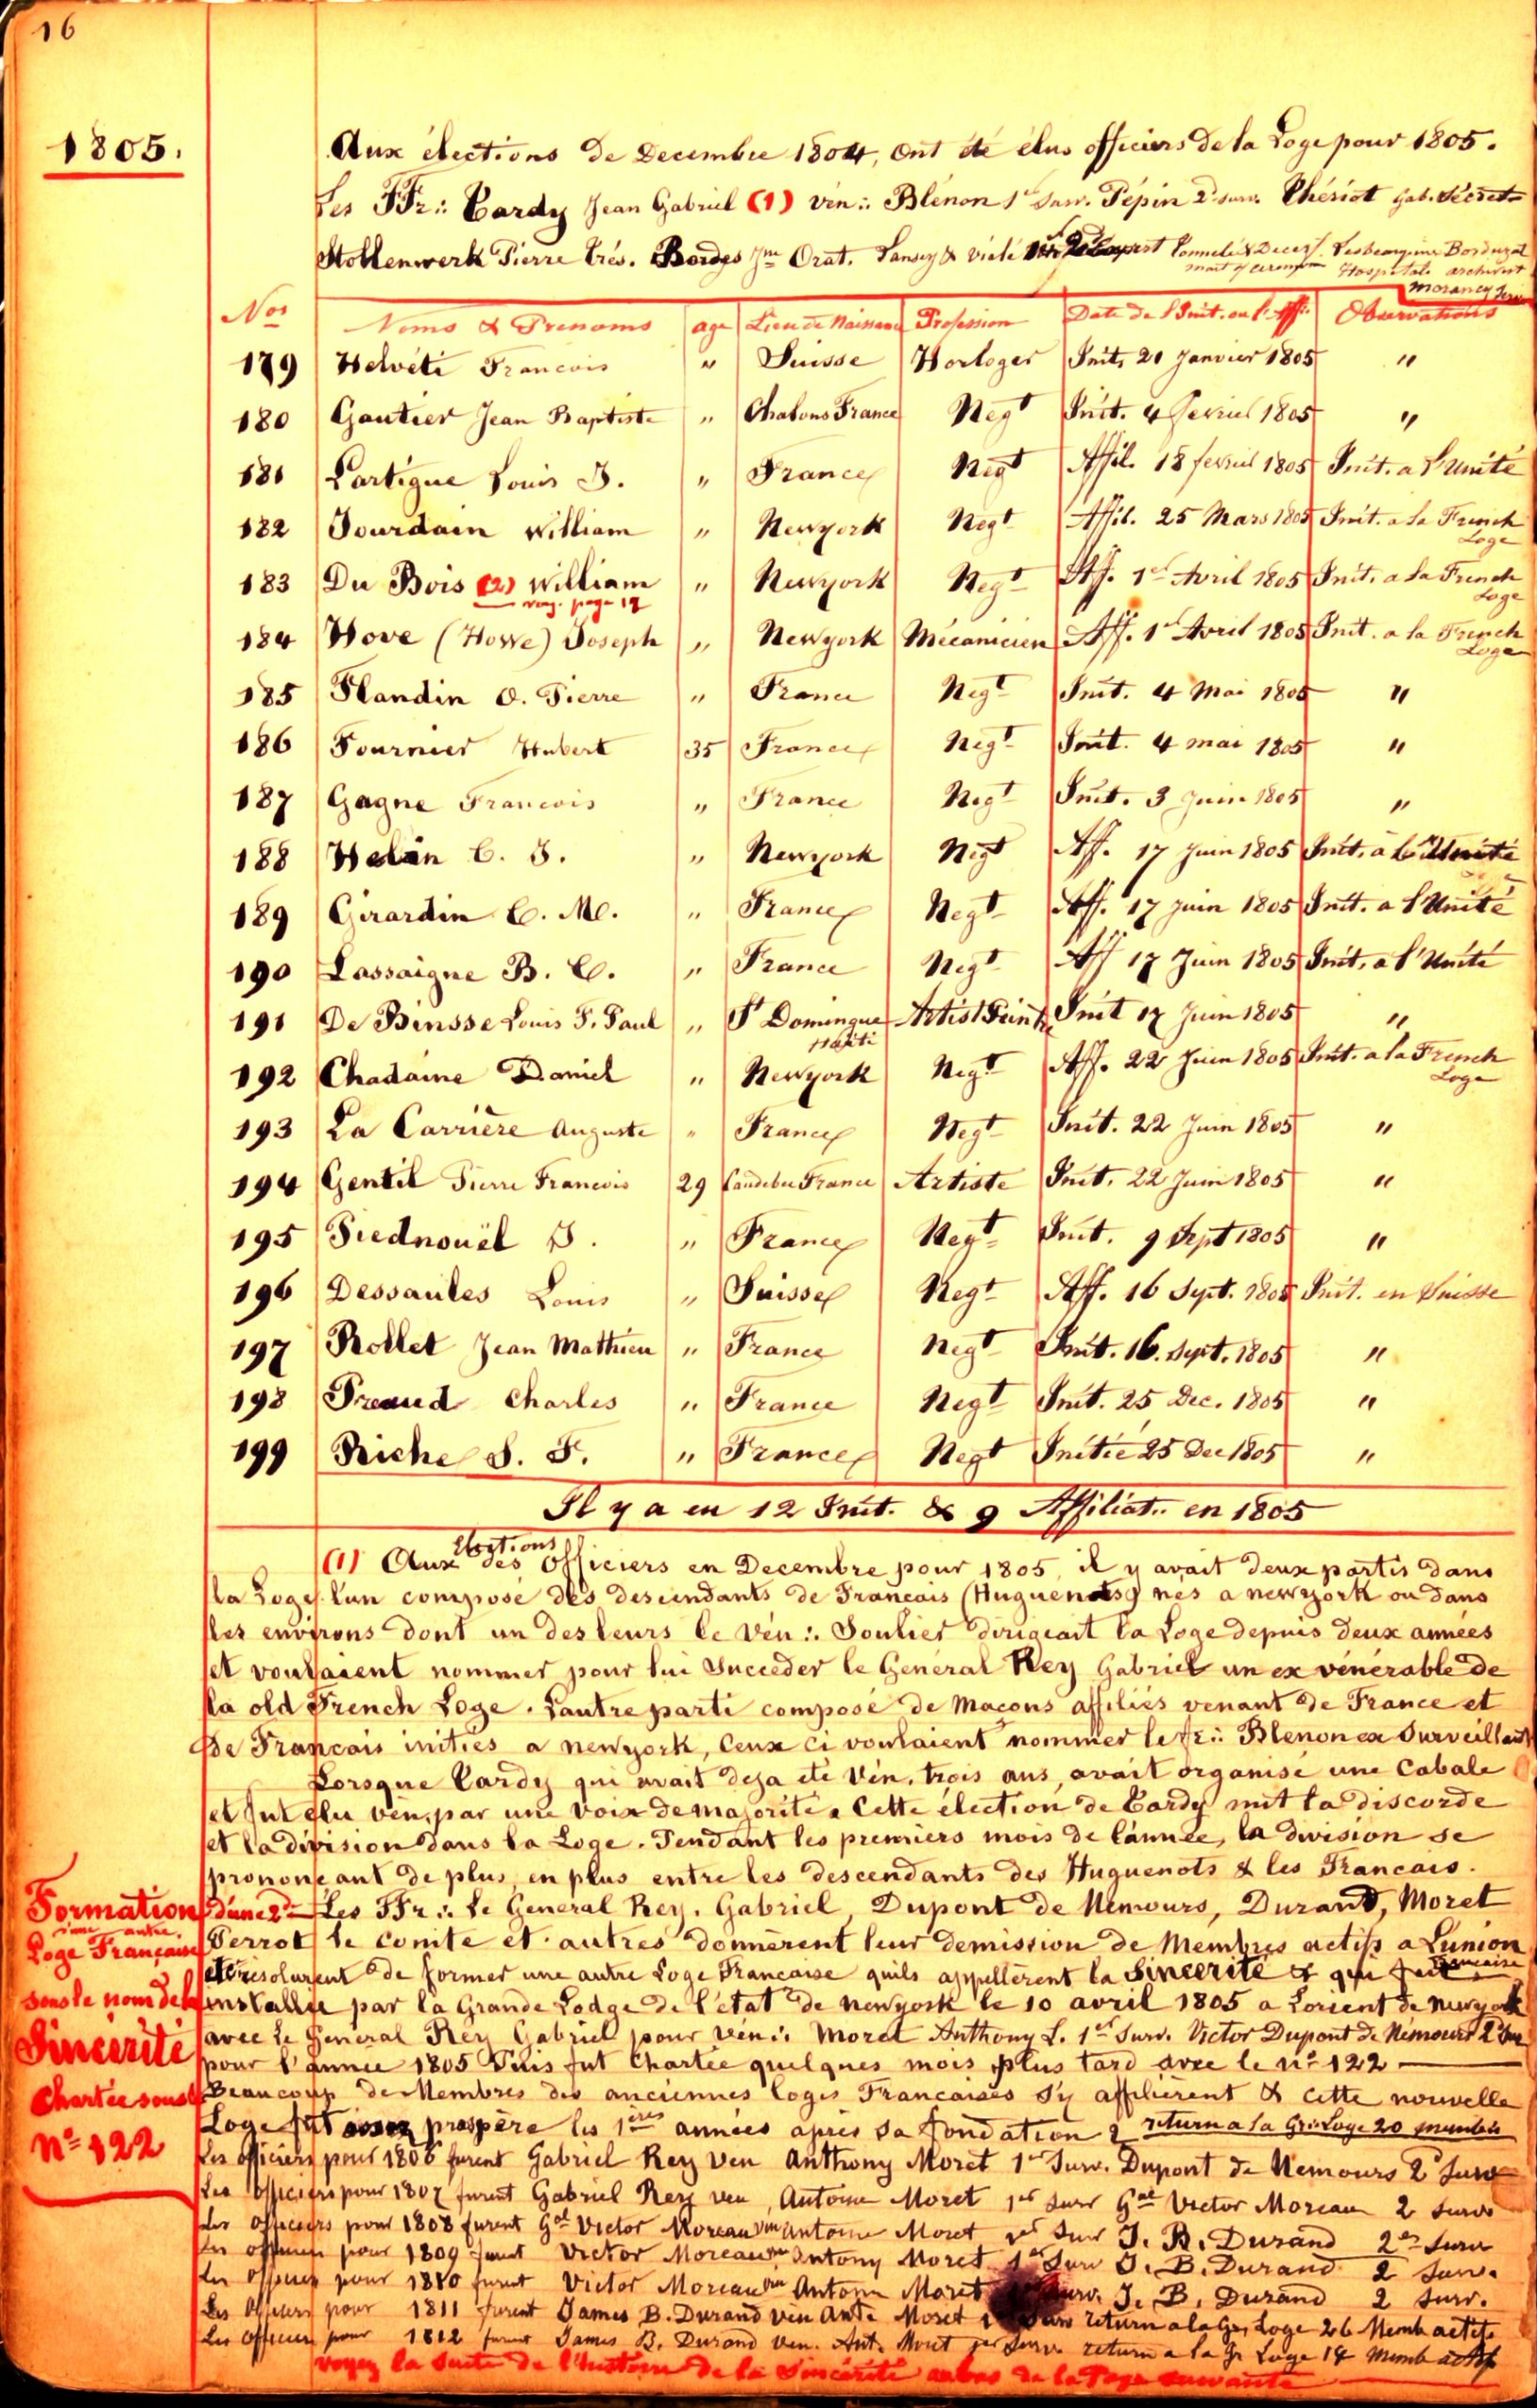 16
1805.
Aux élections de Decembre 1804, ont été élus officiers de la Loge pour 1805.
Les FFr∴ Cardy Jean Gabriel (1) vén∴ Blénon 1er Surv. Pépin 2d surv. Thériot Gab. Sécret
Stollenwerk Pierre trés. Bordes Jne Orat. Lansey & Vielé
Nos Noms & Prenoms age Lieu de Naissance Profession Date de l'Init. ou l'Aff. Observations
179 Helvéti Francois " Suisse Horloger Init. 20 Janvier 1805 "
180 Gautier Jean Baptiste " Chalons France Negt Init. 4 fevriel 1805 "
181 Lartigue Louis J. " France Negt Affil. 18 fevriel 1805 Init. a l'Unité
182 Jourdain William " Newyork Negt Affil. 25 Mars 1805 Init. a la French Loge
183 Du Bois (2) William " Newyork Negt Aff. 1er Avril 1805 Init. a la French Loge
voy. page 17
184 Hove (Howe) Joseph " Newyork Mécanicien Aff. 1er Avril 1805 Init. a la French Loge
185 Flandin O. Pierre " France Negt Init. 4 Mai 1805 "
186 Fournier Hubert 35 France Negt Init. 4 mai 1805 "
187 Gagne Francois " France Negt Init. 3 Juin 1805 "
188 Helin C. J. " Newyork Negt Aff. 17 Juin 1805 Init. à l'Unité
189 Girardin C. M. " France Negt Aff. 17 juin 1805 Init. a l'Unité
190 Lassaigne B. C. " France Negt Aff 17 Juin 1805 Init. a l'Unité
191 De Binsse Louis F. Paul " St Domingue Haiti Artist Peintre Init 17 Juin 1805 "
192 Chadaine Daniel " Newyork Negt Aff. 22 Juin 1805 Init. a la French Loge
193 La Carrière Auguste " France Negt Init. 22 Juin 1805 "
194 Gentil Pierre Francois 29 Caudebec France Artiste Init. 22 Juin 1805 "
195 Piednouël J. " France Negt Init. 9 Sept 1805 "
196 Dessaules Louis " Suisse Negt Aff. 16 Sept. 1805 Init. en Suisse
197 Rollet Jean Mathieu " France Negt Init. 16. Sept. 1805 "
198 Preaud Charles " France Negt Init. 25 Dec. 1805 "
199 Riche S. F. " France Negt Initié 25 Dec 1805 "
Il y a eu 12 Init. & 9 Affiliat.. en 1805
(1) Aux Elections des Officiers en Decembre pour 1805, il y avait deux partis dans
la Loge, l'un composé des descendants de Francais (Huguenots) nés a newyork ou dans
les environs dont un des leurs le Vén∴ Soulier dirigeait la Loge depuis deux années
et voulaient nommer pour lui Succeder le Général Rey Gabriel un ex vénérable de
la old French Loge. L'autre parti composé de Maçons affiliés venant de France et
de Francais initiés a newyork, Ceux ci voulaient nommer le fr∴ Blenon ex Surveillant
Lorsque Cardy qui avait deja été Vén. trois ans, avait organisé une Cabale
et fut elu vén. par une voix de majorité. Cette élection de Cardy mit la discorde
et la division dans la Loge. Pendant les premiers mois de l'année, la division se
prononçant de plus en plus entre les descendants des Huguenots & les Francais.
Formation d'une 2e
d'une autre
Loge Française
sous le nom de la
Sincérité
Chartée sous le
No 122
Les FFr∴ le General Rey. Gabriel, Dupont de Nemours, Durand, Moret
Perrot le comte et autres donnèrent leur demission de Membres actifs a L'union francaise
et résolurent de former une autre Loge Francaise quils appellèrent la Sincerité & qui fut
installée par la Grande Lodge de l'état de newyork le 10 avril 1805 a Lorient de newyork
avec le General Rey Gabriel pour vén∴ Moret Anthony L. 1er Surv. Victor Dupont de Némours 2d Sur
pour l'année 1805 Puis fut Chartée quelques mois plus tard avec le No 122
Beaucoup de Membres des anciennes loges Francaises s'y affilièrent & cette nouvelle
Loge fut assez prospère les 1ères années après sa fondation & return a la Gr. Loge 20 membres
Les officiers pour 1806 furent Gabriel Rey Ven Anthony Moret 1er Surv. Dupont de Nemours 2d Surv
Les Officiers pour 1807 furent Gabriel Rey ven, Antoine Moret 1er Surv Gal Victor Moreau 2 surv
Les Officiers pour 1808 furent Gal Victor Moreau ven Antoine Moret 1er Surv J. B. Durand 2er Surv
Les officiers pour 1809 furent Victor Moreau ven Antony Moret 1er Surv J. B. Durand 2 Surv.
Les Officiers pour 1810 furent Victor Moreau ven Antoine Moret surv. J. B. Durand 2 Surv.
Les Officiers pour 1811 furent James B. Durand ven Ant. Moret 1er Surv return a la Gr. Loge 26 Memb actifs
Les Officiers pour 1812 furent James B. Durand ven. Ant. Moret 1er Surv. return a la Gr Loge 18 Memb actifs
voyez la Suite de l'histoire de la Sincérité au bas de la Page suivante